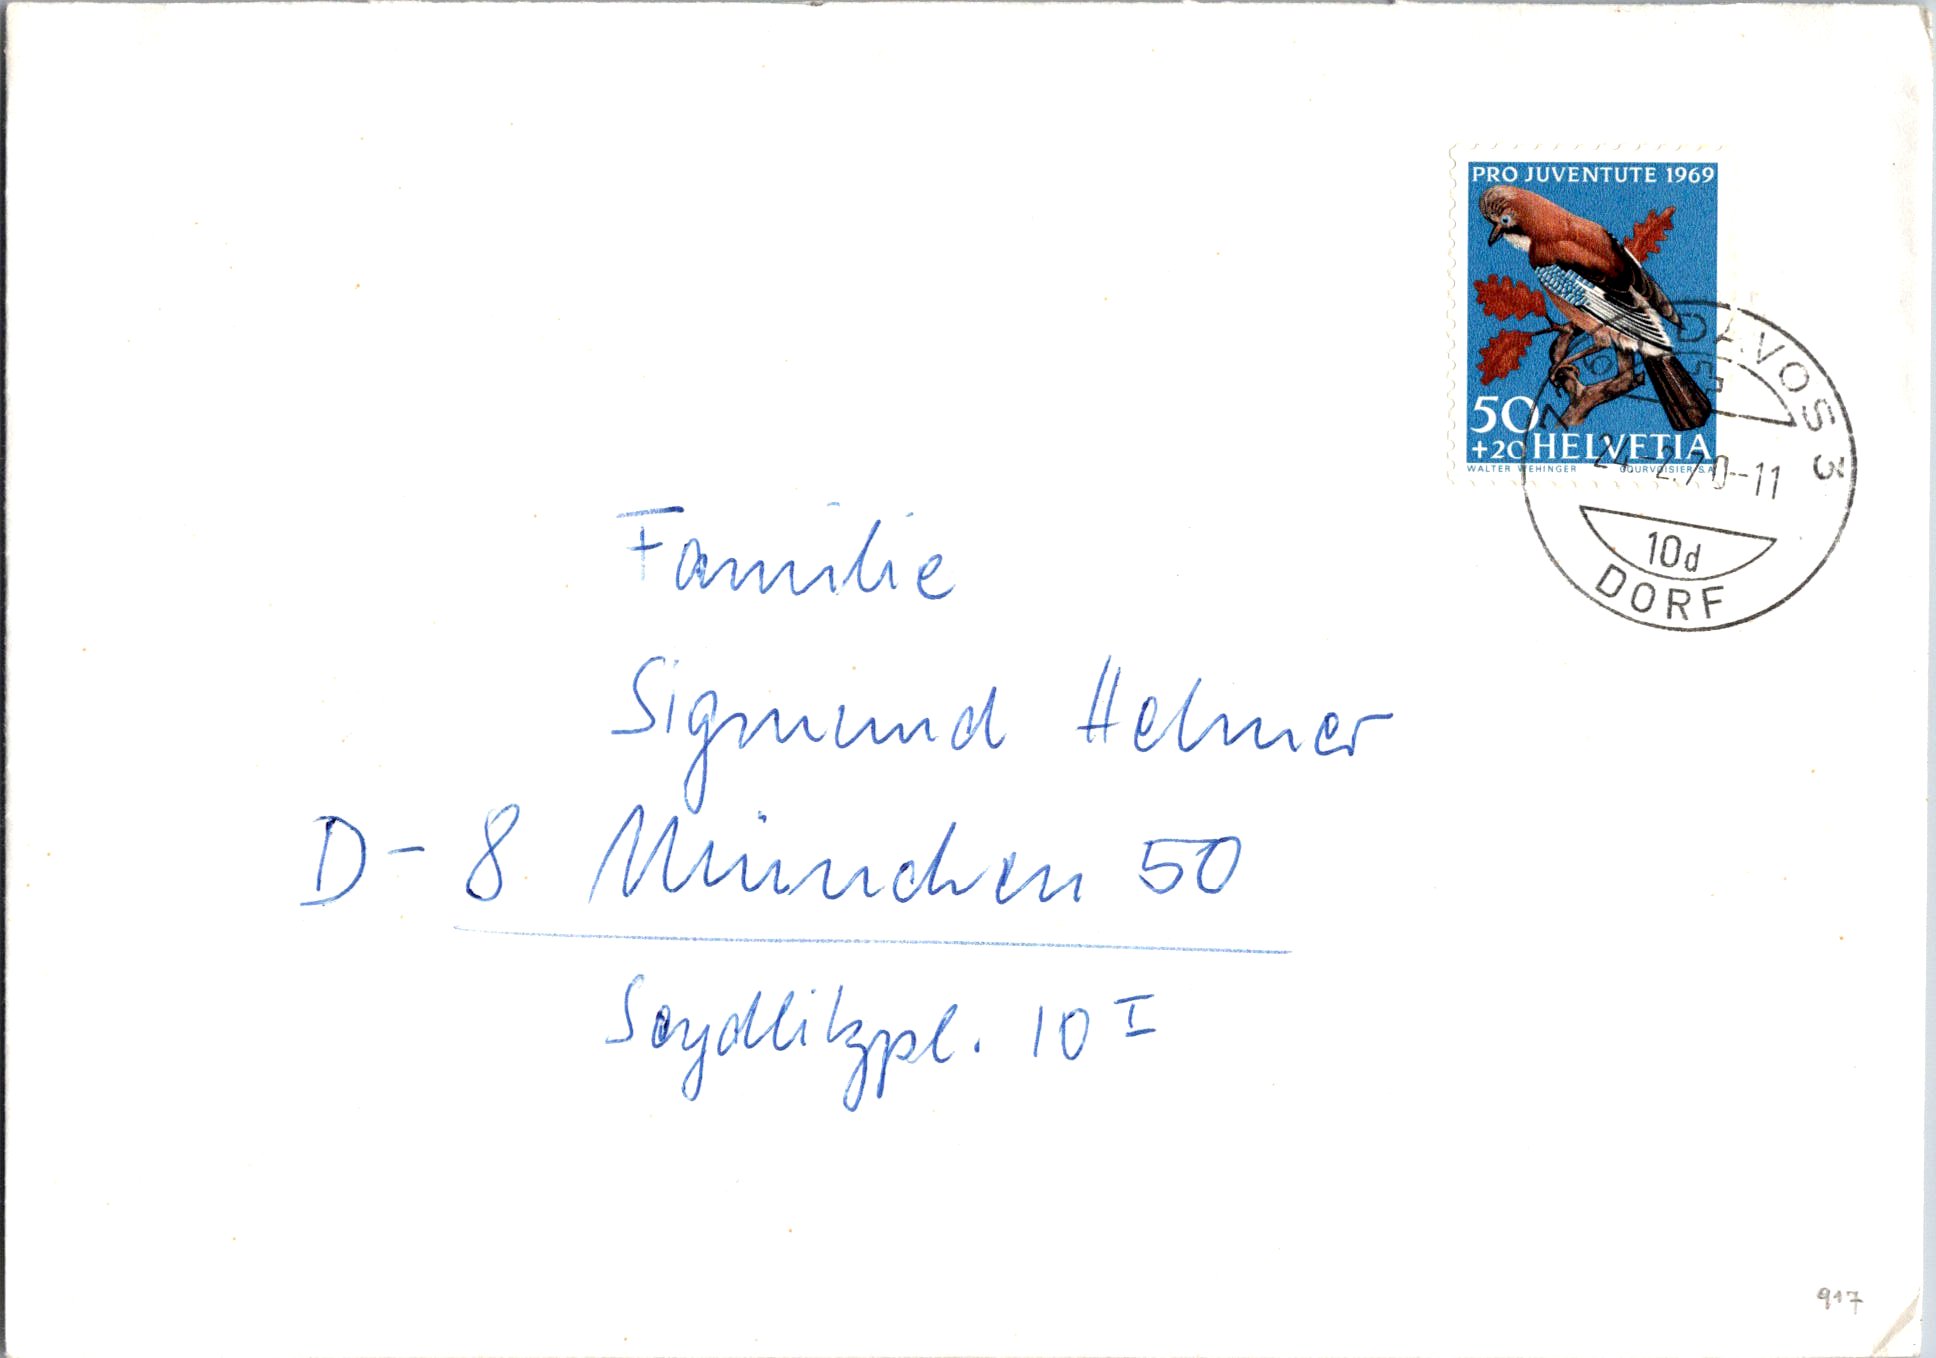 PRO JUVENTUTE 1969
50
+20 HELVETIA
WALTER WEHINGER COURVOISIER S.A.
7265 DAVOS 3
24-2.70-11
10d
DORF
Familie
Sigmund Helmer
D-8 München 50
Seydlitzpl. 10 I
917